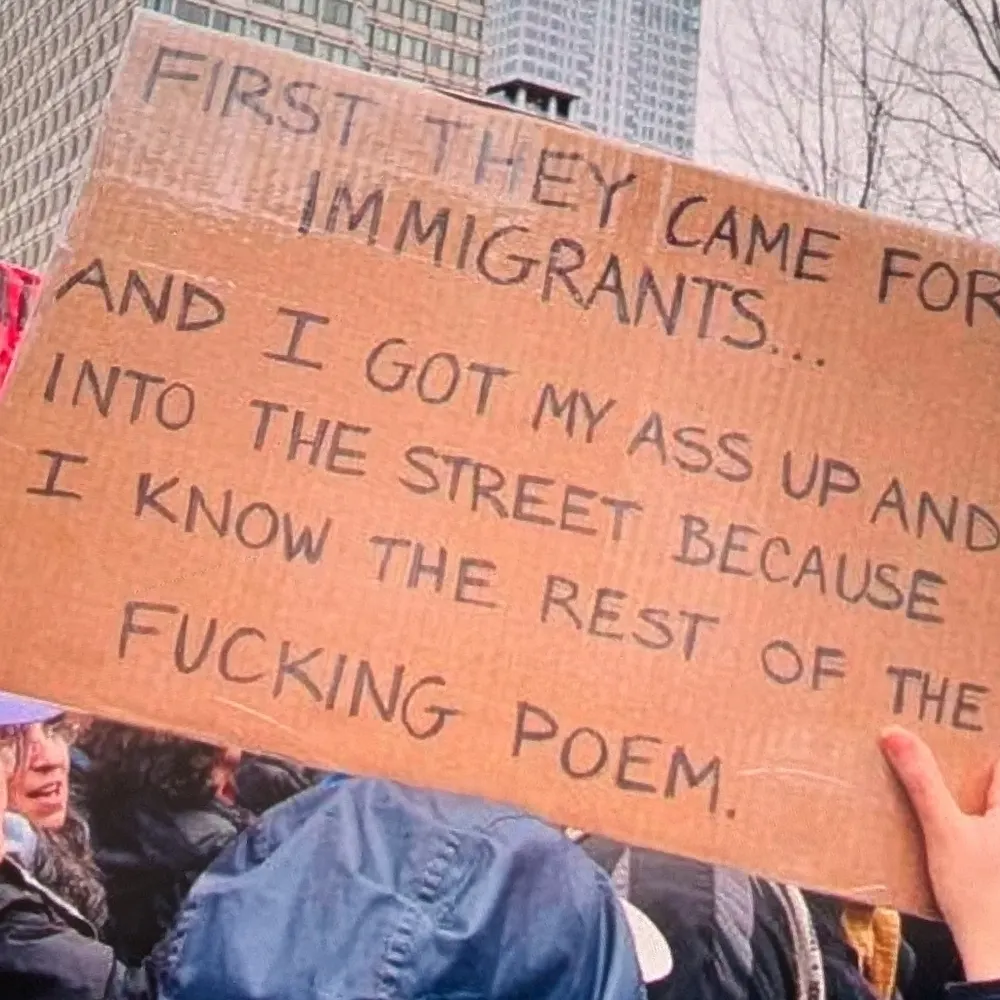 FIRST THEY CAME FOR
IMMIGRANTS...
AND I GOT MY ASS UP AND
INTO THE STREET BECAUSE
I KNOW THE REST OF THE
FUCKING POEM.